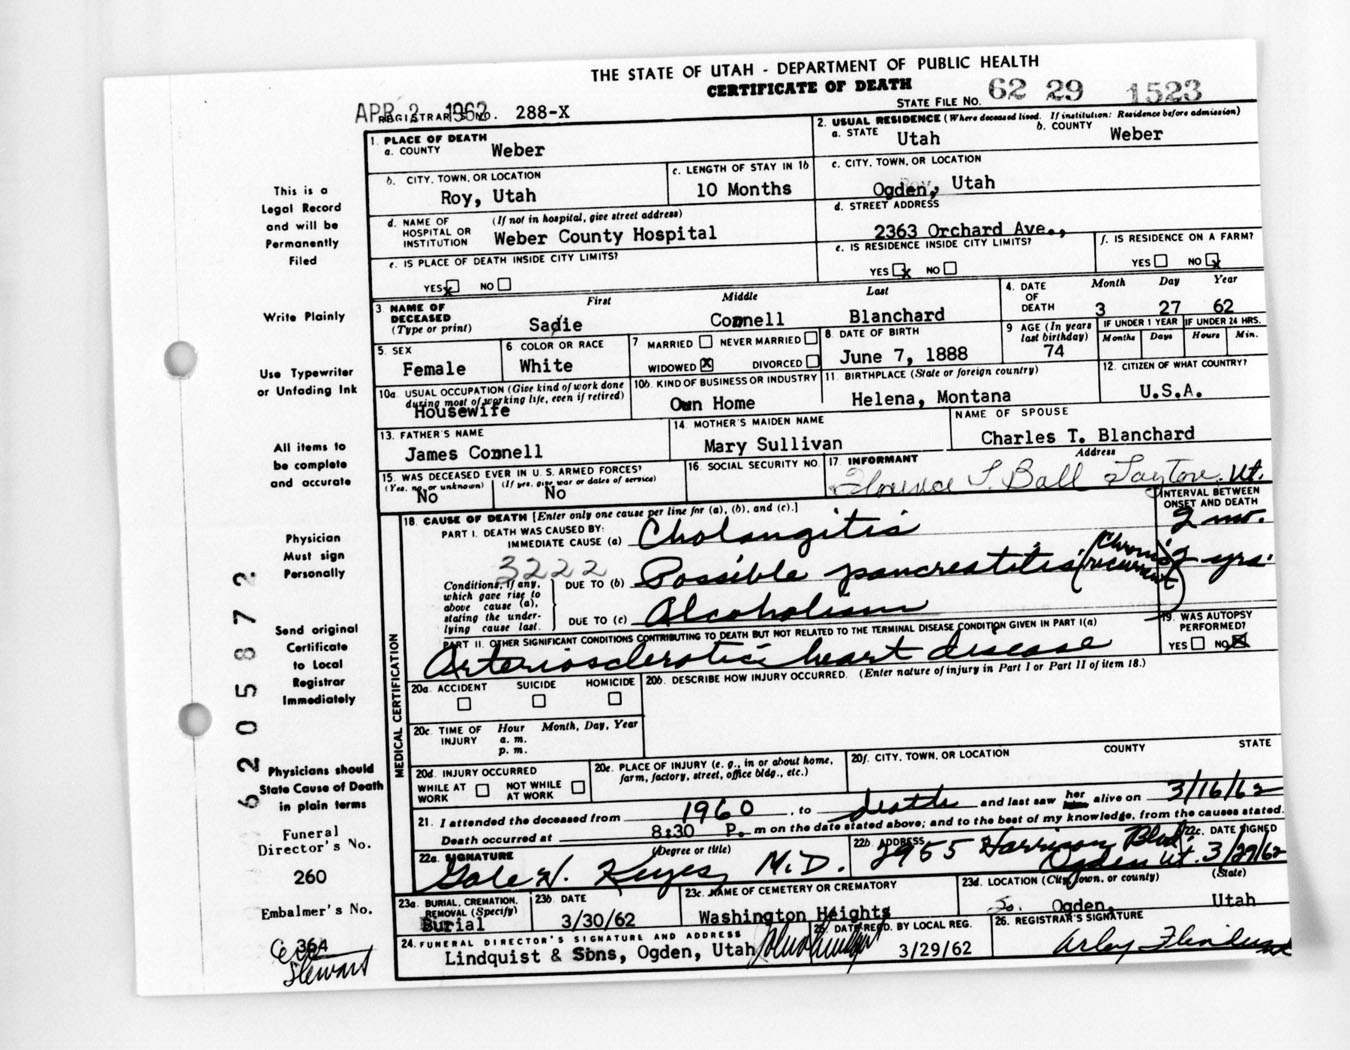 THE STATE OF UTAH - DEPARTMENT OF PUBLIC HEALTH
CERTIFICATE OF DEATH
STATE FILE NO. 62 29 1523
APR 2 1962 REGISTRAR'S NO. 288-X
1. PLACE OF DEATH
a. COUNTY Weber
2. USUAL RESIDENCE (Where deceased lived. If institution: Residence before admission)
a. STATE Utah b. COUNTY Weber
b. CITY, TOWN, OR LOCATION Roy, Utah
c. LENGTH OF STAY IN 1b 10 Months
c. CITY, TOWN, OR LOCATION Ogden, Utah
d. NAME OF HOSPITAL OR INSTITUTION (If not in hospital, give street address) Weber County Hospital
d. STREET ADDRESS 2363 Orchard Ave.,
e. IS PLACE OF DEATH INSIDE CITY LIMITS? YES x NO
e. IS RESIDENCE INSIDE CITY LIMITS? YES x NO
f. IS RESIDENCE ON A FARM? YES NO x
3. NAME OF DECEASED (Type or print) First Sadie Middle Connell Last Blanchard
4. DATE OF DEATH Month 3 Day 27 Year 62
5. SEX Female
6. COLOR OR RACE White
7. MARRIED NEVER MARRIED WIDOWED x DIVORCED
8. DATE OF BIRTH June 7, 1888
9. AGE (In years last birthday) 74
IF UNDER 1 YEAR Months Days
IF UNDER 24 HRS. Hours Min.
10a. USUAL OCCUPATION (Give kind of work done during most of working life, even if retired) Housewife
10b. KIND OF BUSINESS OR INDUSTRY Own Home
11. BIRTHPLACE (State or foreign country) Helena, Montana
12. CITIZEN OF WHAT COUNTRY? U.S.A.
13. FATHER'S NAME James Connell
14. MOTHER'S MAIDEN NAME Mary Sullivan
NAME OF SPOUSE Charles T. Blanchard
15. WAS DECEASED EVER IN U.S. ARMED FORCES?
(Yes, no, or unknown) No (If yes, give war or dates of service) No
16. SOCIAL SECURITY NO.
17. INFORMANT Florence T. Ball Address Layton, Ut.
18. CAUSE OF DEATH [Enter only one cause per line for (a), (b), and (c).]
INTERVAL BETWEEN ONSET AND DEATH
PART I. DEATH WAS CAUSED BY:
IMMEDIATE CAUSE (a) Cholangitis 2 mo.
3222
Conditions, if any, which gave rise to above cause (a), stating the underlying cause last.
DUE TO (b) Possible pancreatitis (chronic recurrent) 2 yrs.
DUE TO (c) Alcoholism
PART II. OTHER SIGNIFICANT CONDITIONS CONTRIBUTING TO DEATH BUT NOT RELATED TO THE TERMINAL DISEASE CONDITION GIVEN IN PART I(a)
Arteriosclerotic heart disease
19. WAS AUTOPSY PERFORMED? YES NO x
20a. ACCIDENT SUICIDE HOMICIDE
20b. DESCRIBE HOW INJURY OCCURRED. (Enter nature of injury in Part I or Part II of item 18.)
20c. TIME OF INJURY Hour a. m. p. m. Month, Day, Year
20d. INJURY OCCURRED WHILE AT WORK NOT WHILE AT WORK
20e. PLACE OF INJURY (e. g., in or about home, farm, factory, street, office bldg., etc.)
20f. CITY, TOWN, OR LOCATION COUNTY STATE
21. I attended the deceased from 1960, to death and last saw her alive on 3/16/62
Death occurred at 8:30 P. m on the date stated above; and to the best of my knowledge, from the causes stated.
22a. SIGNATURE (Degree or title) Gale W. Keyes, M.D.
22b. ADDRESS 2955 Harrison Blvd. Ogden Ut.
22c. DATE SIGNED 3/29/62
23a. BURIAL, CREMATION, REMOVAL (Specify) Burial
23b. DATE 3/30/62
23c. NAME OF CEMETERY OR CREMATORY Washington Heights
23d. LOCATION (City, town, or county) (State) So. Ogden, Utah
24. FUNERAL DIRECTOR'S SIGNATURE AND ADDRESS Lindquist & Sons, Ogden, Utah
25. DATE RECD. BY LOCAL REG. 3/29/62
26. REGISTRAR'S SIGNATURE
MEDICAL CERTIFICATION
This is a
Legal Record
and will be
Permanently
Filed
Write Plainly
Use Typewriter
or Unfading Ink
All items to
be complete
and accurate
Physician
Must sign
Personally
Send original
Certificate
to Local
Registrar
Immediately
Physicians should
State Cause of Death
in plain terms
Funeral
Director's No.
260
Embalmer's No.
364
Stewart
6205872